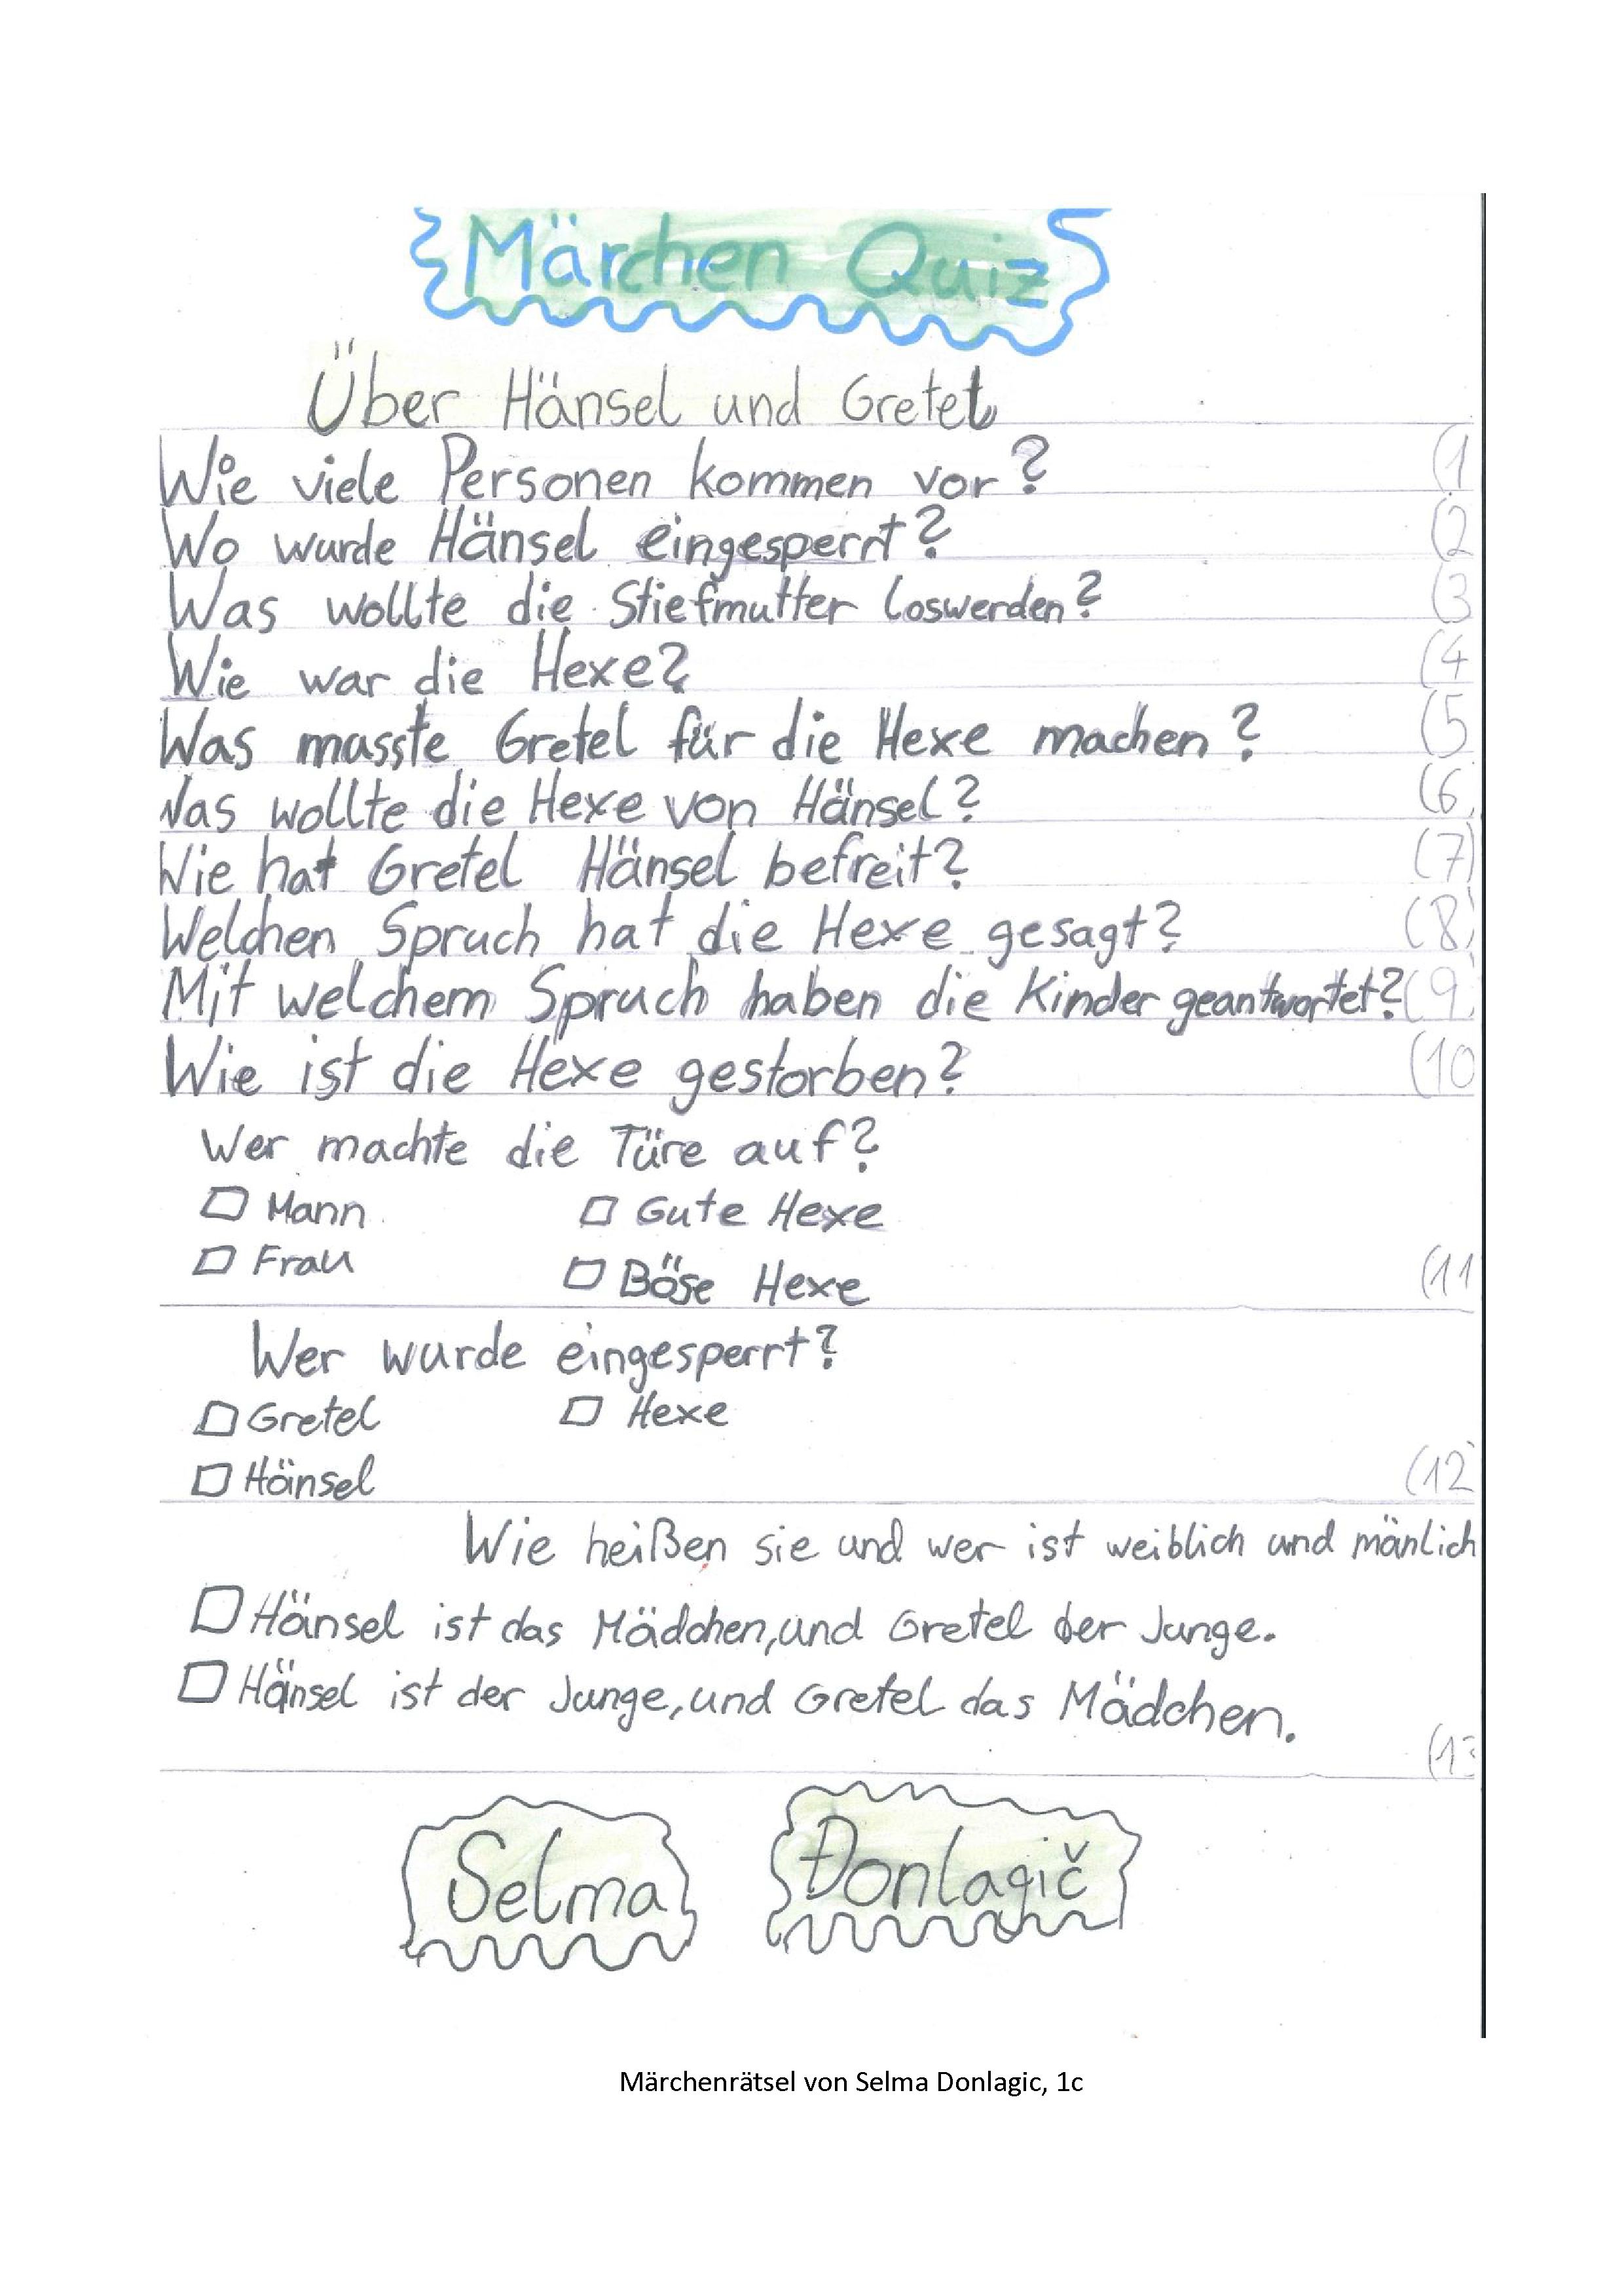 Märchen Quiz
Über Hänsel und Gretel
Wie viele Personen kommen vor? (1
Wo wurde Hänsel eingesperrt? (2
Was wollte die Stiefmutter loswerden? (3
Wie war die Hexe? (4
Was musste Gretel für die Hexe machen? (5
Was wollte die Hexe von Hänsel? (6
Wie hat Gretel Hänsel befreit? (7)
Welchen Spruch hat die Hexe gesagt? (8)
Mit welchem Spruch haben die Kinder geantwortet? (9)
Wie ist die Hexe gestorben? (10
Wer machte die Türe auf?
Mann Gute Hexe
Frau Böse Hexe (11
Wer wurde eingesperrt?
Gretel Hexe
Hänsel (12
Wie heißen sie und wer ist weiblich und mänlich
Hänsel ist das Mädchen, und Gretel der Junge.
Hänsel ist der Junge, und Gretel das Mädchen.
(13
Selma Đonlagič
Märchenrätsel von Selma Donlagic, 1c